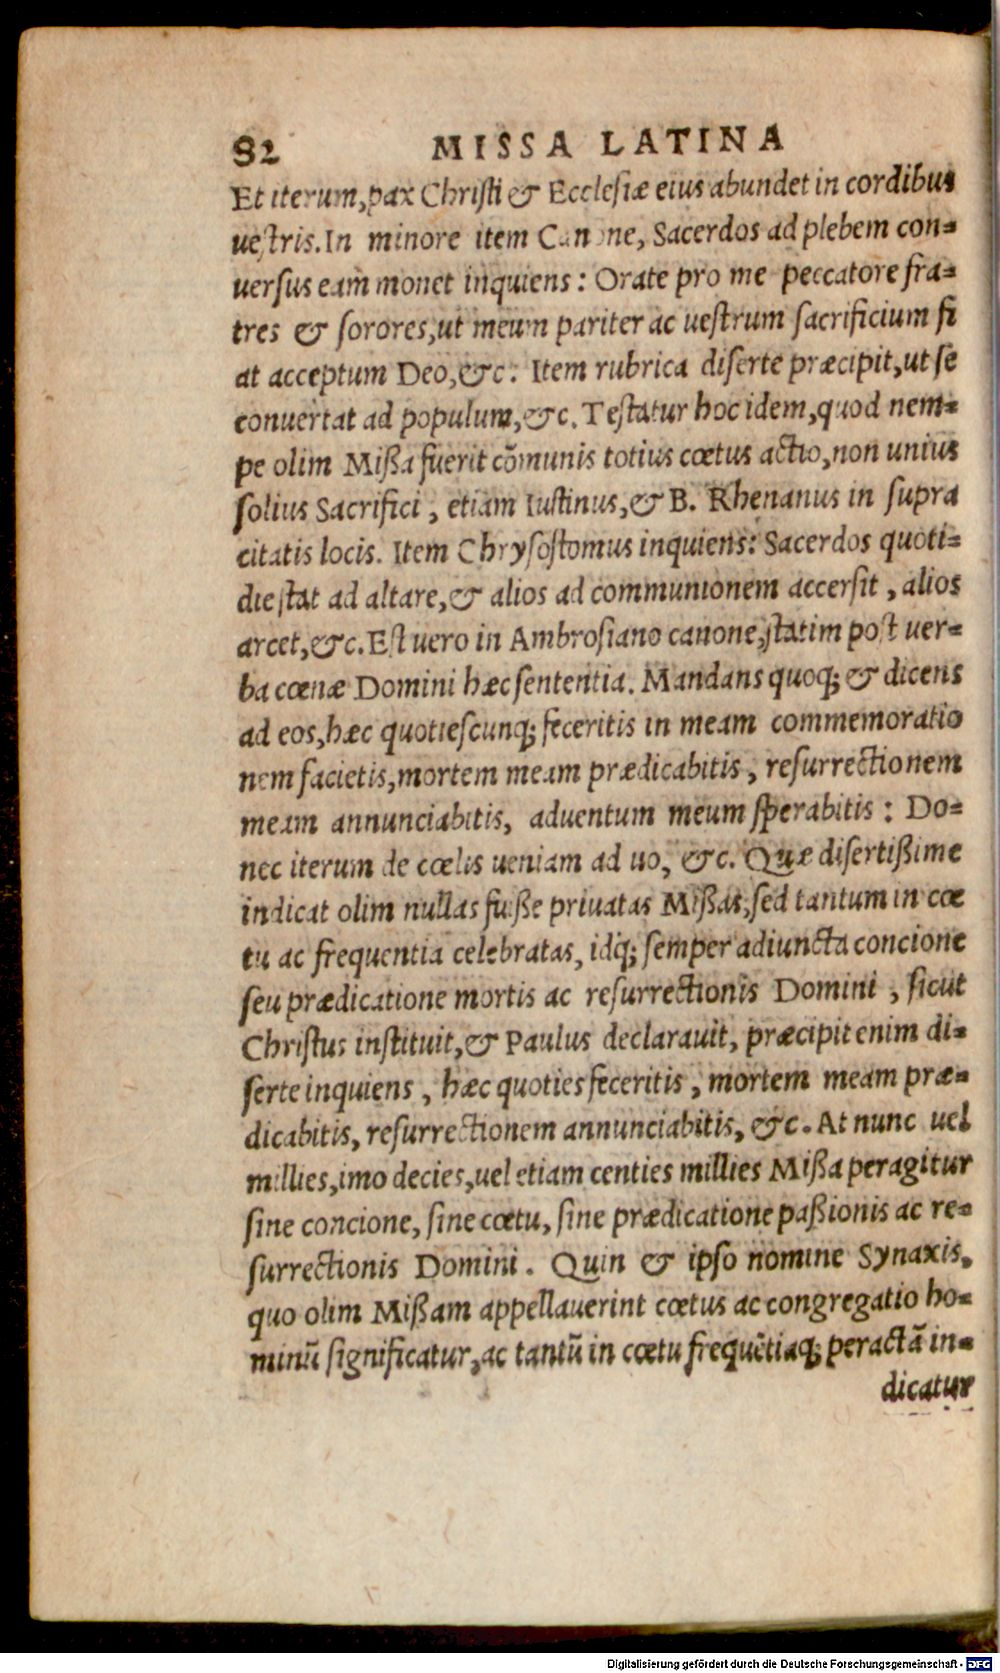 82 MISSA LATINA
Et iterum, pax Christi & Ecclesiæ eius abundet in cordibus
uestris. In minore item Canone, Sacerdos ad plebem con=
uersus eam monet inquiens: Orate pro me peccatore fra=
tres & sorores, ut meum pariter ac uestrum sacrificium fi
at acceptum Deo, &c. Item rubrica diserte præcipit, ut se
conuertat ad populum, &c. Testatur hoc idem, quod nem=
pe olim Mißa fuerit cõmunis totius cœtus actio, non unius
solius Sacrifici, etiam Iustinus, & B. Rhenanus in supra
citatis locis. Item Chrysostomus inquiens: Sacerdos quoti=
die stat ad altare, & alios ad communionem accersit, alios
arcet, &c. Est uero in Ambrosiano canone, statim post uer=
ba cœnæ Domini hæc sententia. Mandans quoq; & dicens
ad eos, hæc quotiescunq; feceritis in meam commemoratio
nem facietis, mortem meam prædicabitis, resurrectionem
meam annunciabitis, aduentum meum sperabitis: Do=
nec iterum de cœlis ueniam ad uo, &c. Quæ disertißime
indicat olim nullas fuiße priuatas Mißas, sed tantum in cœ
tu ac frequentia celebratas, idq; semper adiuncta concione
seu prædicatione mortis ac resurrectionis Domini, sicut
Christus instituit, & Paulus declarauit, præcipit enim di=
serte inquiens, hæc quoties feceritis, mortem meam præ=
dicabitis, resurrectionem annunciabitis, &c. At nunc uel
millies, imo decies, uel etiam centies millies Mißa peragitur
sine concione, sine cœtu, sine prædicatione paßionis ac re=
surrectionis Domini. Quin & ipso nomine Synaxis,
quo olim Mißam appellauerint cœtus ac congregatio ho=
minũ significatur, ac tantũ in cœtu frequẽtiaq; peractã in=
dicatur
Digitalisierung gefördert durch die Deutsche Forschungsgemeinschaft - DFG